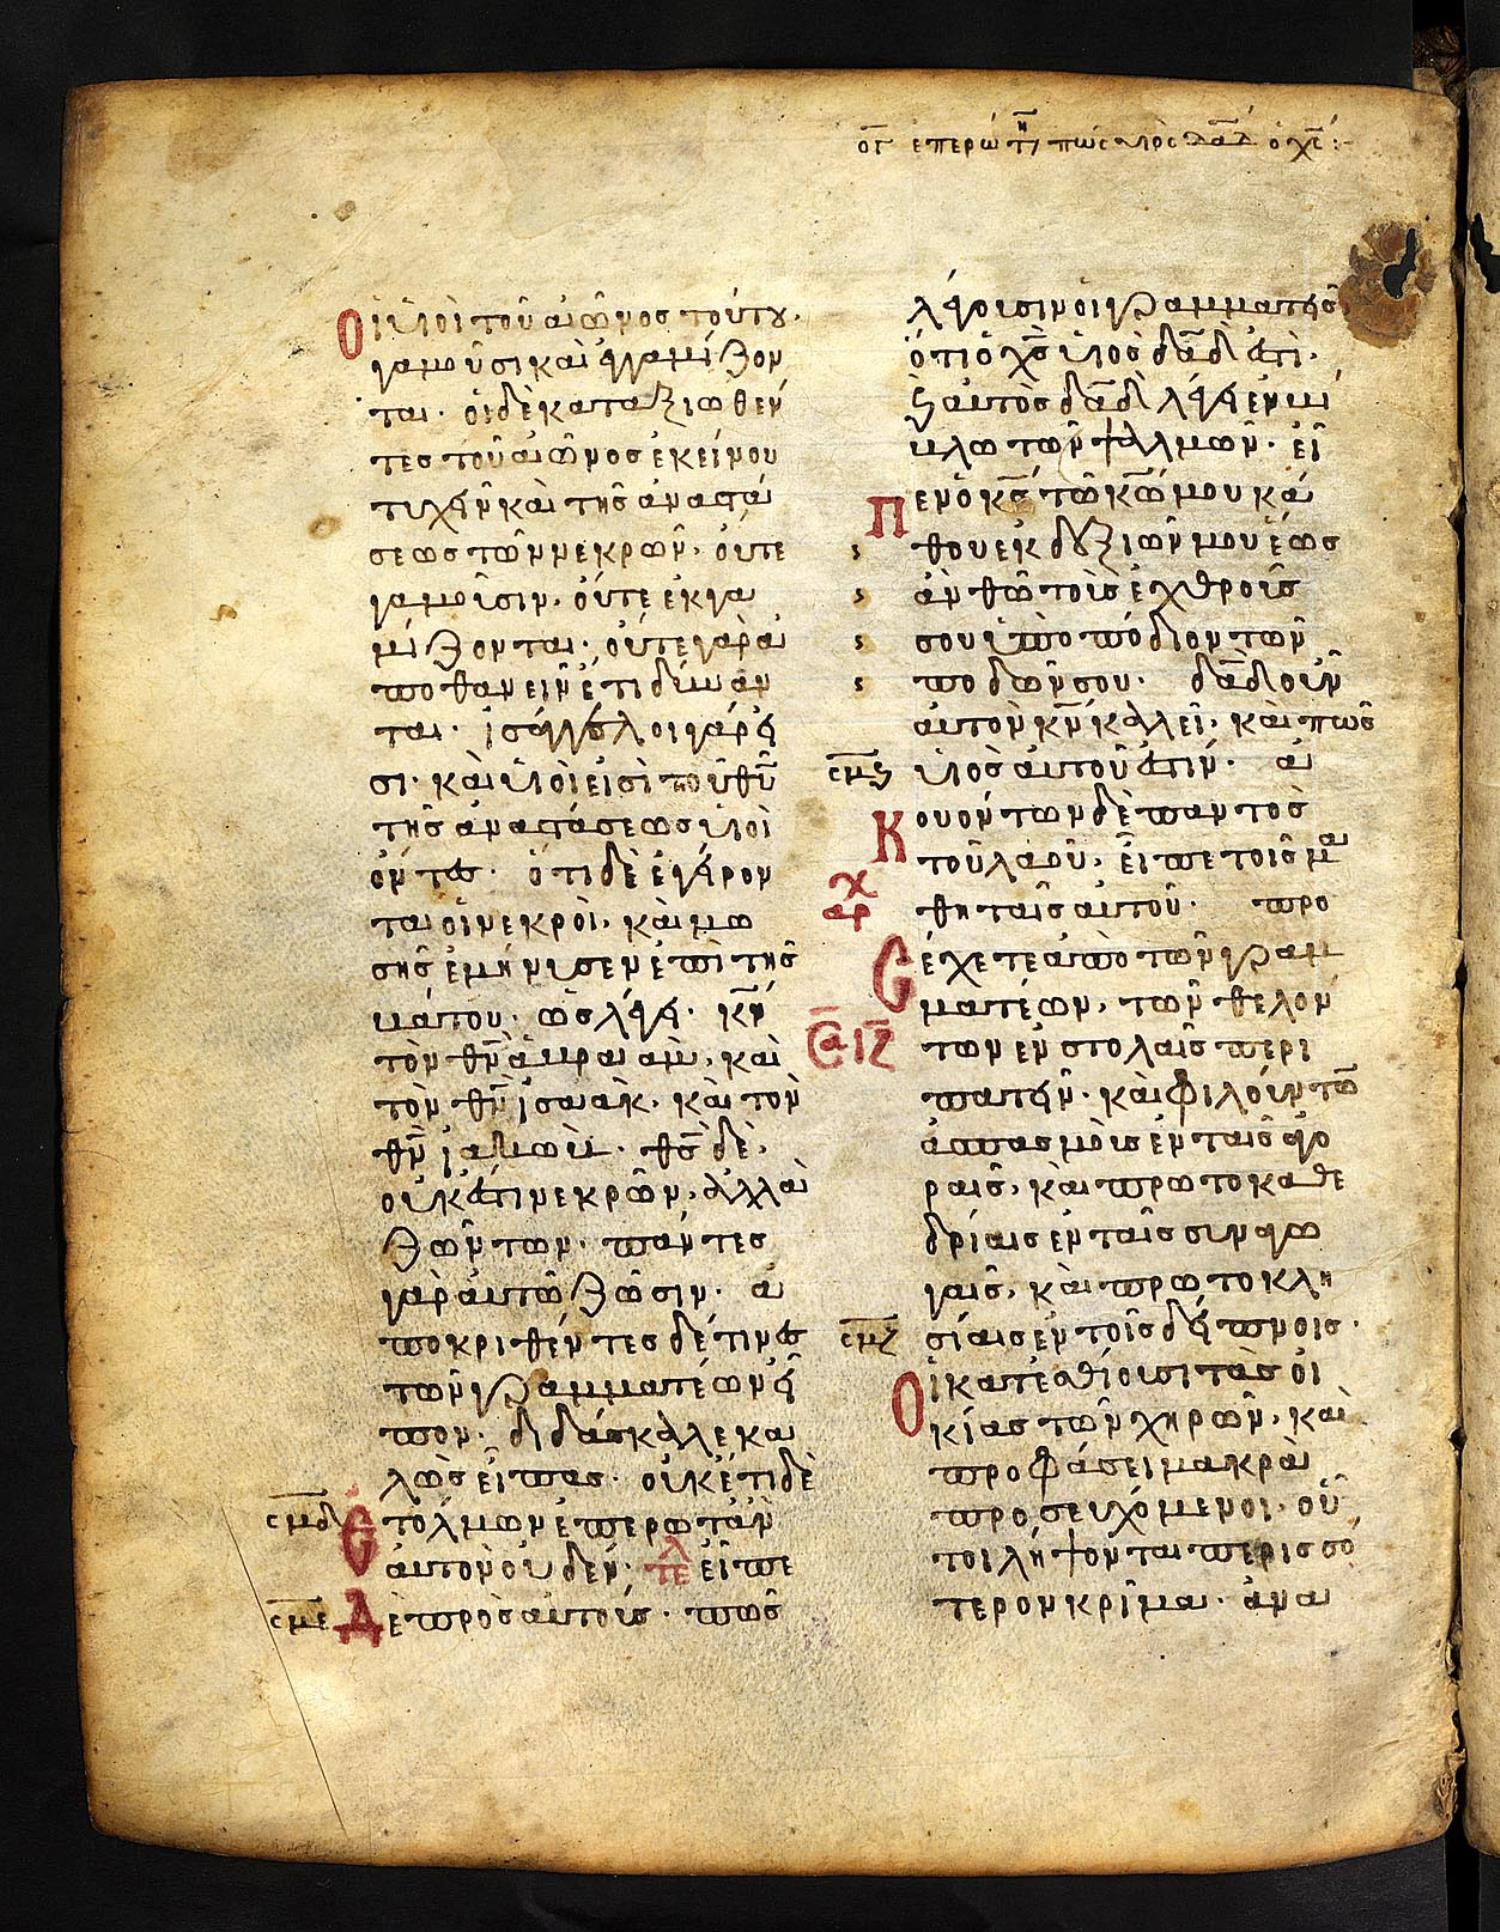 ογ επερώτη πῶς υἱός δᾱδ ὁ χς̄:-
Οἱ υἱοὶ τοῦ αἰῶνος τούτου.
γαμοῦσι καὶ ἐγγαμίζον
ται· οἱ δὲ καταξιωθέν
τες τοῦ αἰῶνος ἐκείνου
τυχεῖν καὶ τῆς ἀναστά
σεως τῶν νεκρῶν, οὔτε
γαμοῦσιν, οὔτε ἐκγα
μίζονται· οὔτε γὰρ ἀ
ποθανεῖν ἔτι δύναν
ται· ἰσάγγελοι γάρ εἰ
σι· καὶ υἱοὶ εἰσὶ τοῦ θῦ
τῆς ἀναστάσεως υἱοὶ
ὄντες· ὅτι δὲ ἐγείρον
ται οἱ νεκροὶ, καὶ μω
σῆς ἐμήνυσεν ἐπὶ τῆς
βάτου· ὡς λέγει· κν̄
τὸν θν̄ ἀβραάμ, καὶ
τὸν θν̄ ἰσαάκ, καὶ τὸν
θν̄ ἰακώβ· θς̄ δὲ,
οὐκ ἔστι νεκρῶν, ἀλλὰ
ζώντων· πάντες
γὰρ αὐτῶ ζῶσιν· ἀ
ποκριθέντες δέ τινες
τῶν γραμματέων εἶ
πον· διδάσκαλε κα
λῶς εἶπας· οὐκέτι δὲ
σμδ ἐτόλμων ἐπερωτᾶν
αὐτὸν οὐδέν· τελ εἶπε
σμε Δὲ πρὸς αὐτούς· πῶς
λέγουσιν οἱ γραμματεῖς
ὅτι ὁ χς̄ υἱὸς δᾱδ ἐστι·
ϗ αὐτὸς δᾱδ λέγει ἐν βί
βλω τῶν ψαλμῶν· εἶ
Πεν ὁ κς̄ τῶ κω̄ μου κά
θου ἐκ δεξιῶν μου ἕως
ἂν θῶ τοὺς ἐχθρούς
σου ὑποπόδιον τῶν
ποδῶν σου· δᾱδ οὖν
αὐτὸν κν̄ καλεῖ, καὶ πῶς
σμϛ υἱὸς αὐτοῦ ἐστιν· ἀ
Κουοντων δὲ παντὸς
τοῦ λαοῦ, εἶπε τοῖς μα
χ
αρ θηταῖς αὐτοῦ· προ
Ϲέχετε ἀπὸ τῶν γραμ
ματέων, τῶν θελόν
ϹΑ ΙΖ των ἐν στολαῖς περι
πατεῖν· καὶ φιλούντω
ἀσπασμοὺς ἐν ταῖς ἀγο
ραῖς, καὶ πρωτοκαθε
δρίαις ἐν ταῖς συναγω
γαῖς, καὶ πρωτοκλη
σμζ σίαις ἐν τοῖς δείπνοις·
Οἱ κατεσθίουσι τὰς οἰ
κίας τῶν χηρῶν, καὶ
προφάσει μακρὰ
προσευχόμενοι· οὗ
τοι λήψονται περισσό
τερον κρῖμα· ἀνα